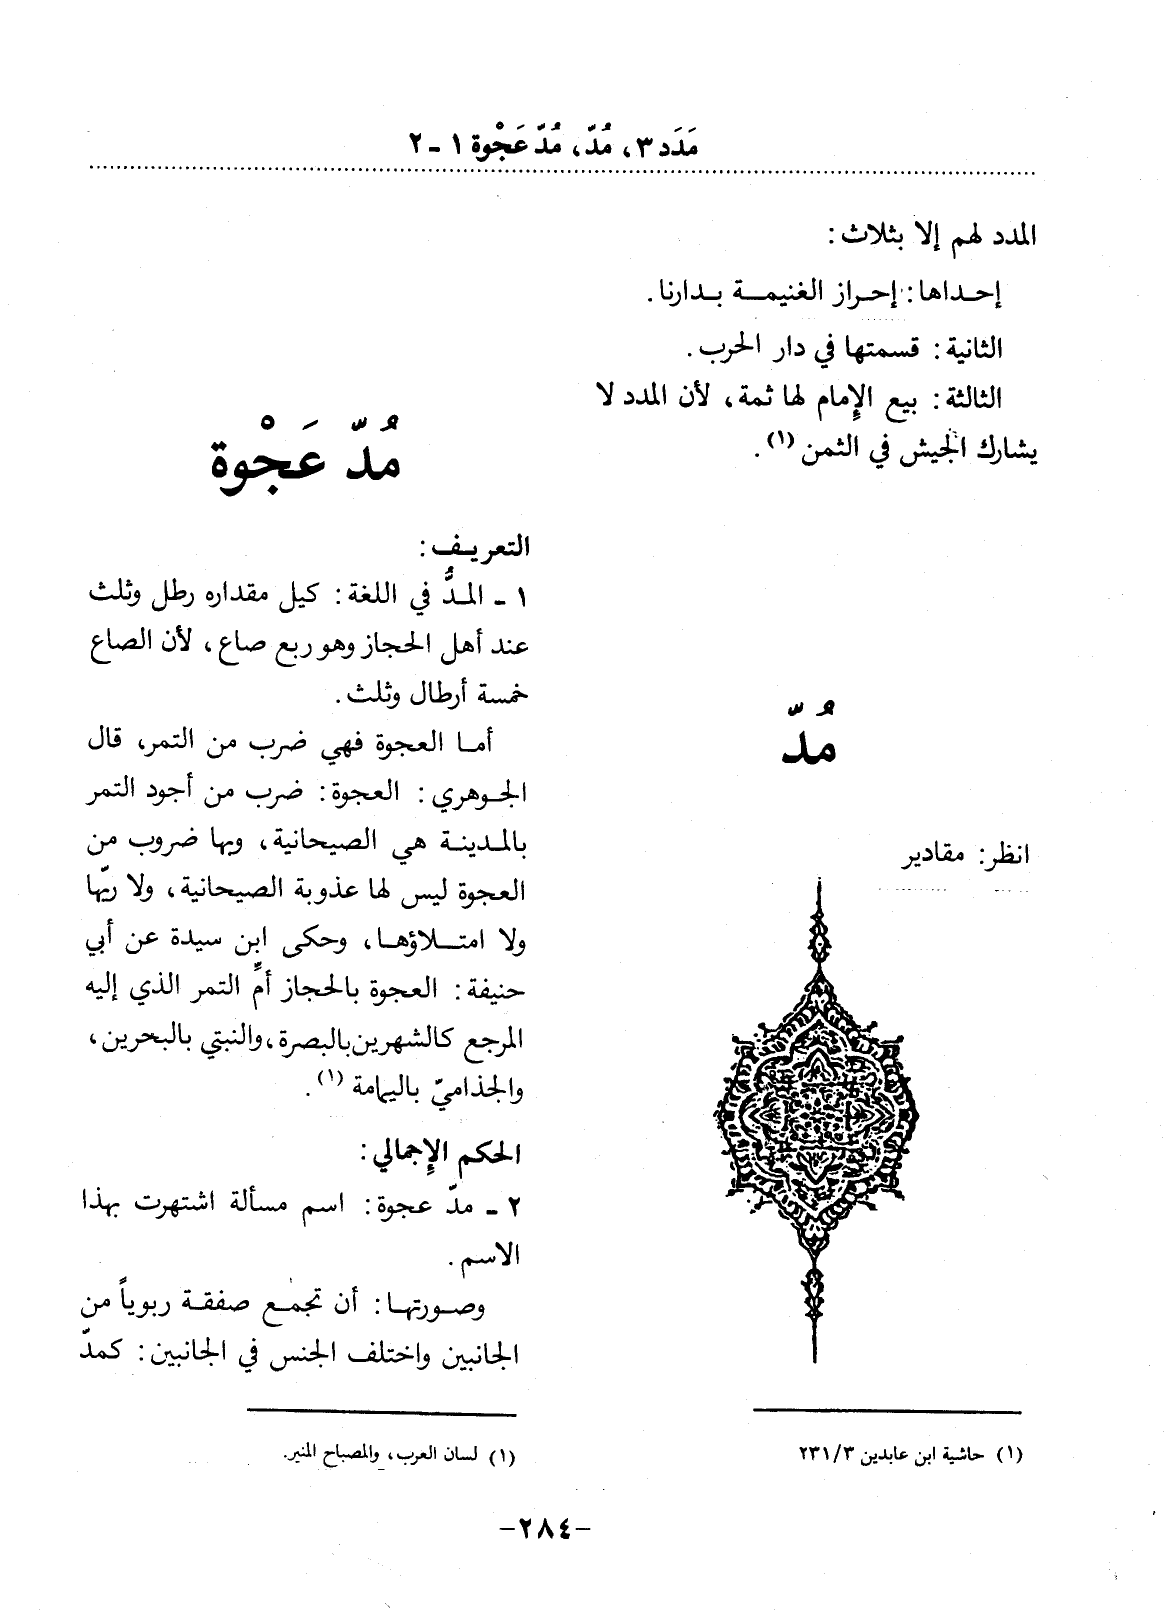 مَدَد ٣، مُدّ، مُدّ عَجْوة ١ - ٢
المدد لهم إلا بثلاث:
إحداها: إحراز الغنيمة بدارنا.
الثانية: قسمتها في دار الحرب.
الثالثة: بيع الإمام لها ثمة، لأن المدد لا
يشارك الجيش في الثمن (١).
مُدّ
انظر: مقادير
(١) حاشية ابن عابدين ٣/ ٢٣١
مُدّ عَجْوة
التعريف:
١ - المدُّ في اللغة: كيل مقداره رطل وثلث
عند أهل الحجاز وهو ربع صاع، لأن الصاع
خمسة أرطال وثلث.
أما العجوة فهي ضرب من التمر، قال
الجوهري: العجوة: ضرب من أجود التمر
بالمدينة هي الصيحانية، وبها ضروب من
العجوة ليس لها عذوبة الصيحانية، ولا ريّها
ولا امتلاؤها، وحكى ابن سيدة عن أبي
حنيفة: العجوة بالحجاز أمٍّ التمر الذي إليه
المرجع كالشهرين بالبصرة، والنبتي بالبحرين،
والجذاميّ باليمامة (١).
الحكم الإجمالي:
٢ - مدّ عجوة: اسم مسألة اشتهرت بهذا
الاسم.
وصورتها: أن تجمع صفقة ربوياً من
الجانبين واختلف الجنس في الجانبين: كمدّ
(١) لسان العرب، والمصباح المنير.
-٢٨٤-